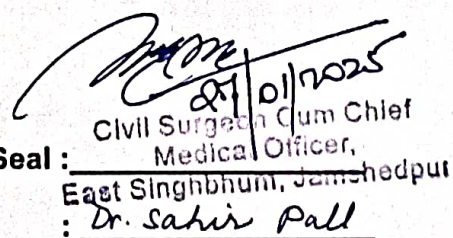 /01/2025
Civil Surgeon Cum Chief
Seal : Medical Officer,
East Singhbhum, Jamshedpur
: Dr. Sahir Pall